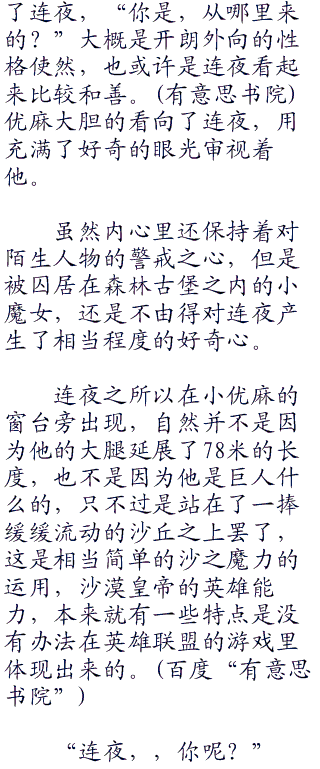 了连夜，“你是，从哪里来
的？”大概是开朗外向的性
格使然，也或许是连夜看起
来比较和善。(有意思书院)
优麻大胆的看向了连夜，用
充满了好奇的眼光审视着
他。
虽然内心里还保持着对
陌生人物的警戒之心，但是
被囚居在森林古堡之内的小
魔女，还是不由得对连夜产
生了相当程度的好奇心。
连夜之所以在小优麻的
窗台旁出现，自然并不是因
为他的大腿延展了78米的长
度，也不是因为他是巨人什
么的，只不过是站在了一捧
缓缓流动的沙丘之上罢了，
这是相当简单的沙之魔力的
运用，沙漠皇帝的英雄能
力，本来就有一些特点是没
有办法在英雄联盟的游戏里
体现出来的。(百度“有意思
书院”)
“连夜，，你呢？”